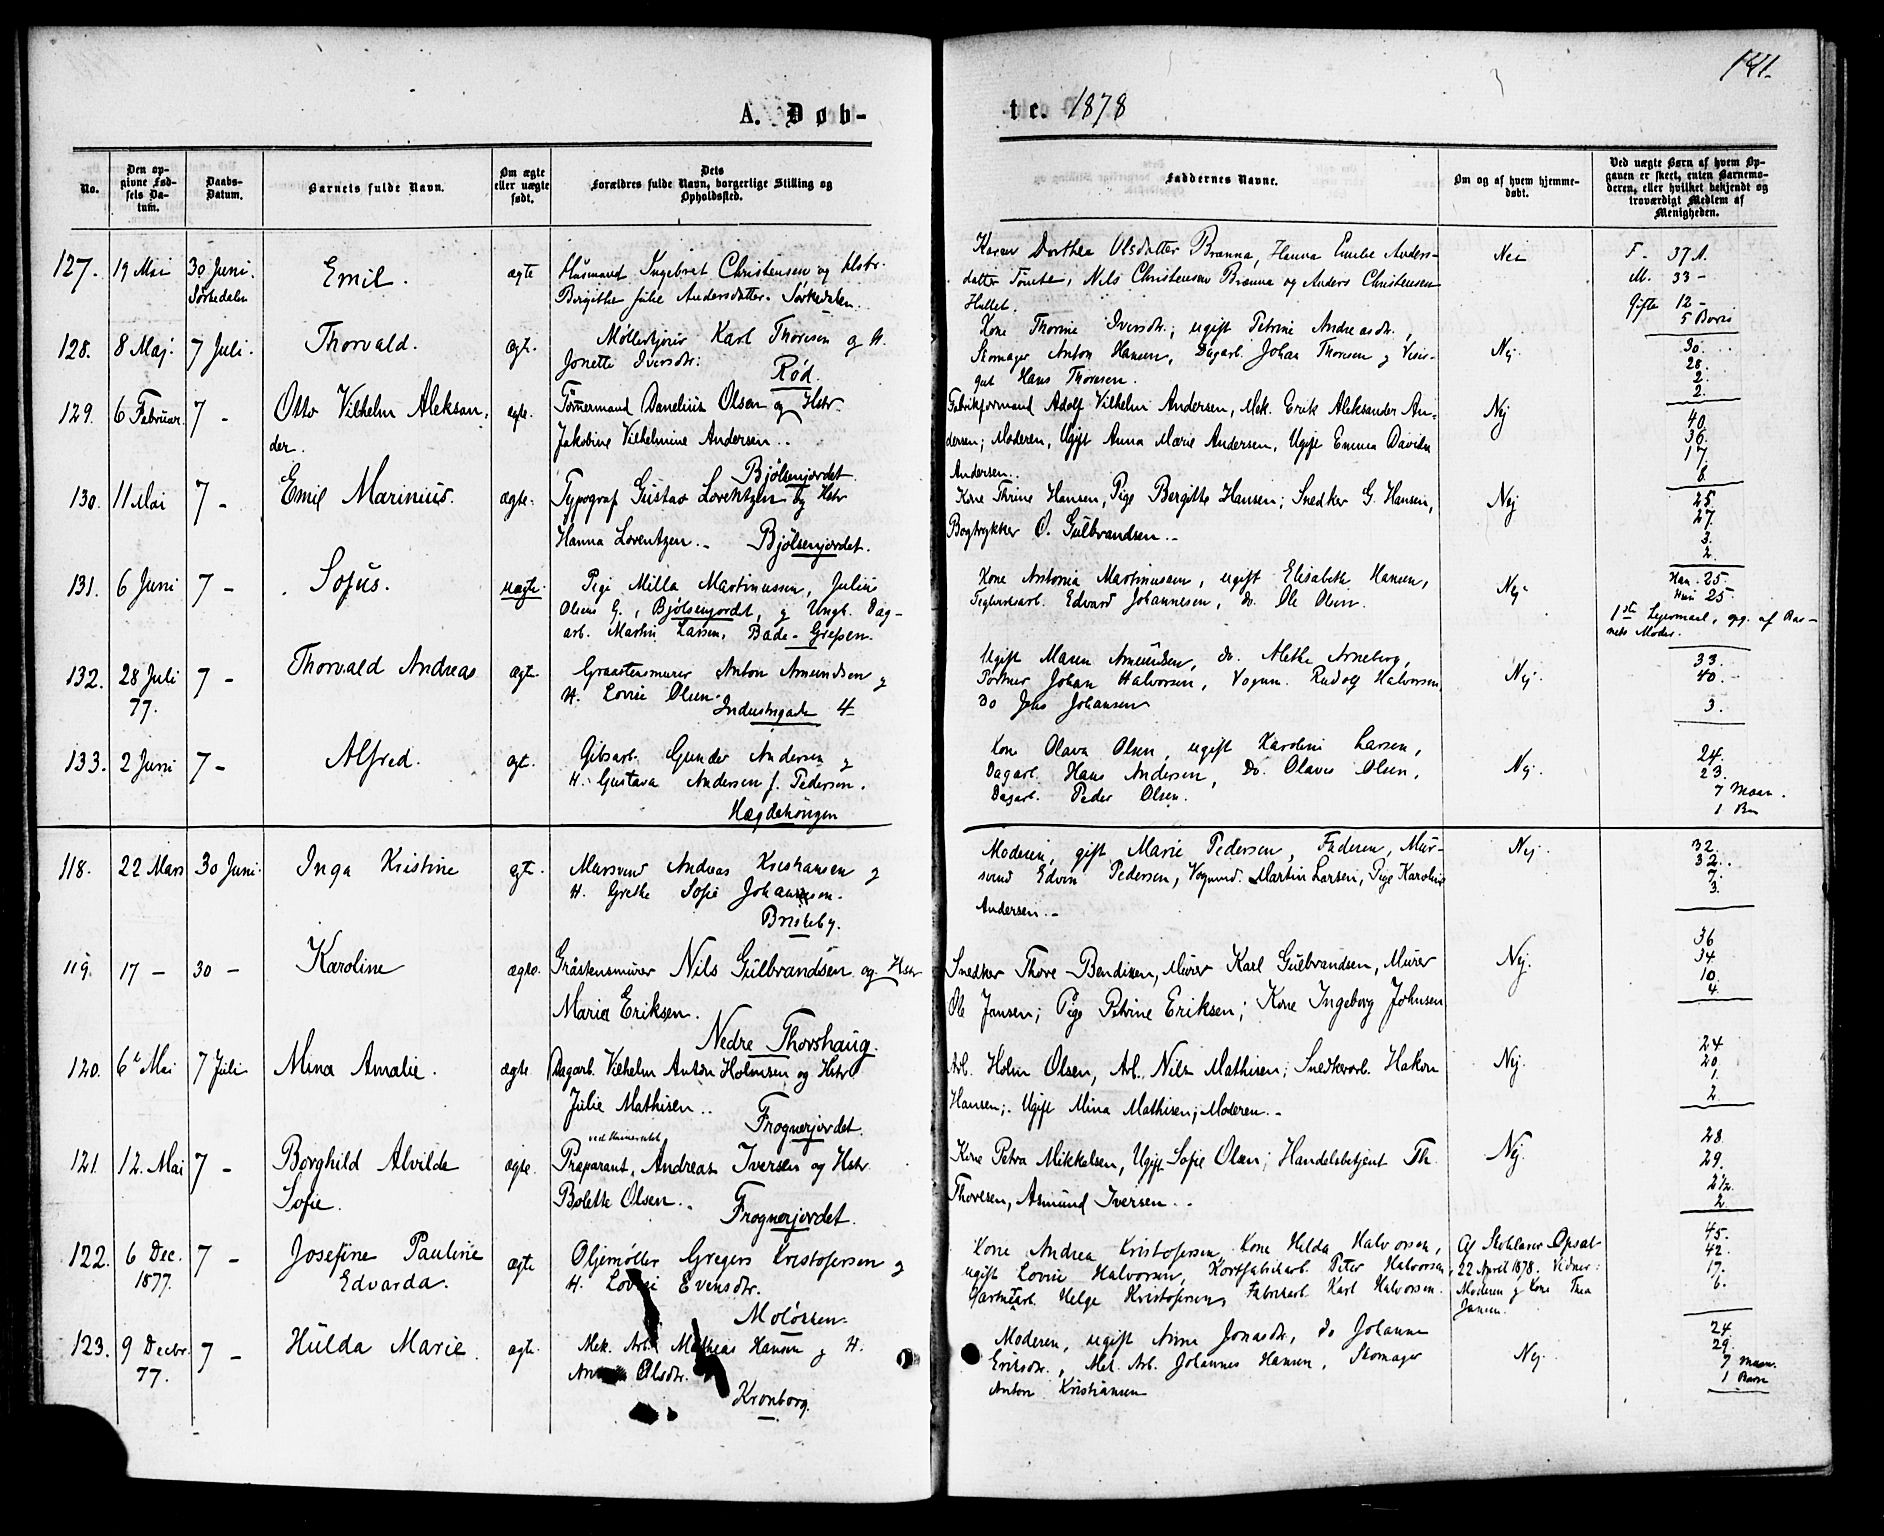 141.
A. Døb-
te. 1878
No.
Den op-
givne Fød-
sels Da-
tum.
Daabs-
Datum.
Barnets fulde Navn.
Om ægte
eller uægte
født.
Dets
Forældres fulde Navn, borgerlige Stilling og
Opholdssted.
Faddernes Navne.
Om og af hvem hjemme-
døbt.
Ved uægte Børn af hvem Op-
gaven er skeet, enten Barnemo-
deren, eller hvilket bekjendt og
troværdigt Medlem af
Menigheden.
127. 19 Mai 30 Juni. Emil. ægte Husmand Ingebret Christensen og Hstr.
Sørkedalen Birgithe Julie Andersdatter. Sørkedalen.
Karen Dorthea Olsdatter Brænna, Hanna Emilie Anders-
datter Tomte, Nils Christensen Brænna og Anders Christensen
Nei
F. 37 A.
M. 33 -
Gifte 12 -
5 Børn
128. 8 Maj. 7 Juli. Thorvald. ægt. Møllerkjører Karl Thoresen og H.
Jonette Iversdtr. Rød.
Kone Thorine Iversdtr., ugift Petrine Andreasdtr.,
Skomager Anton Hansen, Dagarb. Johan Thoresen og
Hans Thoresen.
Nej.
30.
28.
2.
2.
129. 6 Februar. 7 - Otto Vilhelm Aleksan- ægte. Tømmermand Danelius Olsen og Hstr.
der. Jakobine Vilhelmine Andersen..
Bjølsenjordet.
Fabrikformand Adolf Vilhelm Andersen, Mek. Erik Aleksander An-
dersen; Moderen, Ugift Anna Marie Andersen, Ugift Emma Davida
Andersen..
Nej
40.
36.
17.
8.
130. 11 Mai 7 - Emil Marinius. ægte. Typograf Gustav Lorentzen og Hstr
Hanna Lorentzen.. Bjølsenjordet.
Kone Thrine Hansen, Pige Bergitte Hansen; Snedker G. Hansen,
Bogtrykker O. Gulbrandsen..
Nej
25.
27.
3.
2.
131. 6 Juni 7 - Sofus. uægte. Pige Milla Martinussen, Julius
Olsens G., Bjølsenjordt, og Ungk. Dag-
arb. Martin Larsen, Bade-Grefsen.
Kone Antonia Martinussen, ugift Elisabeth Hansen,
Teglverksarb. Edvard Johannesen, do. Ole Olsen.
Nej.
Han 25.
Hun 25.
1ste Lejermaal, opg. af Bar-
nets Moder.
132. 28 Juli 7 - Thorvald Andreas ægt. Graastensmurer Anton Amundsen og
77. H. Lovise Olsen.
Industrigade 4
Ugift Maren Amundsen, do. Alethe Arneberg,
Former Johan Halvorsen, Vognm. Rudolf Halvorsen,
Do Jens Johansen
Nej.
33.
40.
3.
133. 2 Juni 7 - Alfred. ægt. Gibsarb. Gunder Andersen og
H. Gustava Andersen f. Pedersen.
Hægdehougen
Kone Olava Olsen, ugift Karoline Larsen,
Dagarb. Hans Andersen, Do. Olaves Olsen,
Dagarb. Peder Olsen.
Nej.
24.
23.
7 Maan.
1 Bn
118. 22 Mars 30 Juni. Inga Kristine ægt. Mursvend Andreas Kristiansen og
H. Grethe Sofie Johannesen.
Briskeby.
Moderen, gift Marie Pedersen, Faderen, Mur-
svend Edvin Pedersen, Vognmd. Martin Larsen, Pige Karoline
Andersen..
Nej.
32.
32.
7.
3.
119. 17 - 30 - Karoline ægte. Gråstensmurer Nils Gulbrandsen og Hstr
Maria Eriksen.
Nedre Thorshaug.
Snedker Thore Bendixen, Murer Karl Gulbrandsen, Murer
Ole Jansen; Pige Petrine Eriksen; Kone Ingeborg Johnsen
Nej.
36
34.
10.
4.
120. 6te Mai 7 Juli Mina Amalie. ægte. Dagarb. Vilhelm Anton Holmsen og Hstr
Julie Mathisen.. Frognerjordet.
Arb. Holm Olsen, Arb. Nils Mathisen; Snedkerarb. Hakon
Hansen; Ugift Mina Mathisen; Moderen..
Nej.
24
20.
1.
2.
121. 12. Mai 7 - Borghild Alvilde ægte. Præparant ved Universitet. Andreas Iversen og Hstr
Sofie. Bolette Olsen.. Frognerjordet.
Kone Petra Mikkelsen, Ugift Sofie Olsen; Handelsbetjent Th.
Thoresen, Asmund Iversen..
Nej.
28.
29.
2½.
2.
122. 6 Dec. 7 - Josefine Pauline ægte Oljemøller Gregers Kristofersen og
1877. Edvarda. H. Lovise Evensdtr.
Moløkken.
Kone Andrea Kristofersen, Kone Helda Halvorsen,
ugift Lovise Halvorsen, Kortfabrikarb. Peter Halvorsen,
Helge Kristofersen, Fabrikarb. Karl Halvorsen.
Af Skolelærer Opsal
22 April 1878. Vidner:
Moderen og Kone Thea
Jansen.
45.
42.
17.
6.
123. 9 Decbr. 7 - Hulda Marie. ægte. Mek. Arb. Mathias Hansen og H.
77. Olsdtr.
Kronborg.
Moderen, ugift Anne Jonasdtr, do Johanne
Eriksdtr., Mek. Arb. Johannes Hansen, Skomager
Anton Kristiansen
Nej.
24.
29.
7 Maan.
1 Barn